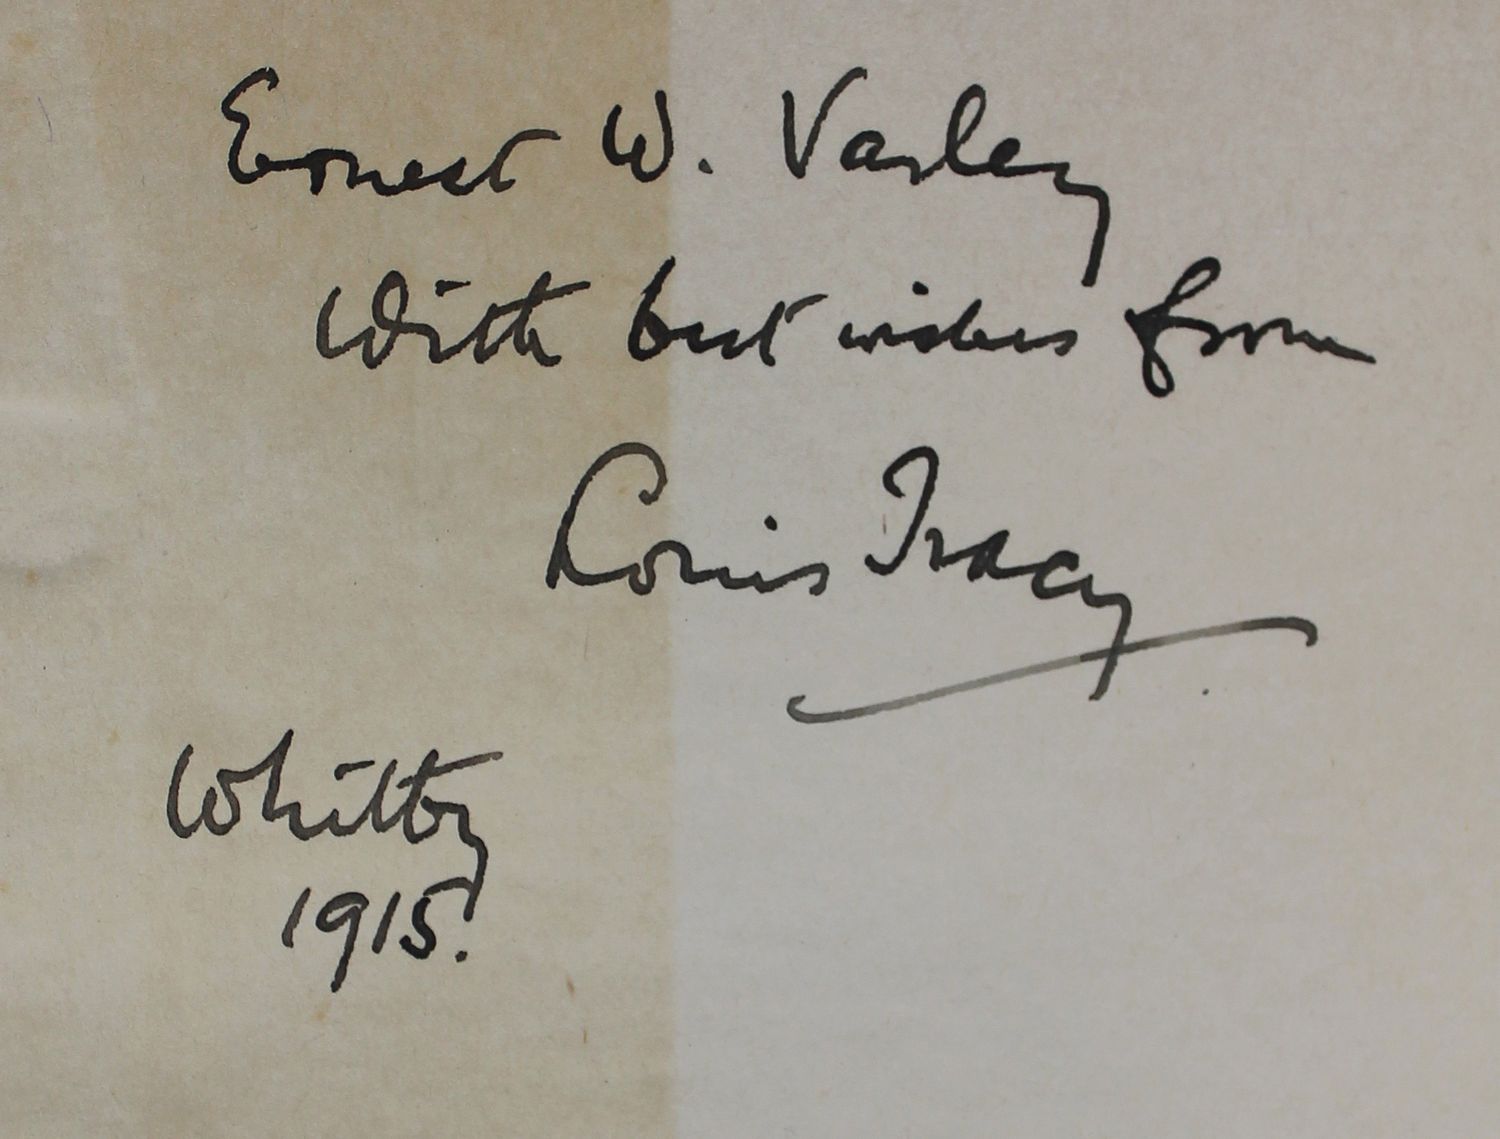 Ernest W. Varley
With best wishes from
Louis Tracy
Whitby
1915.